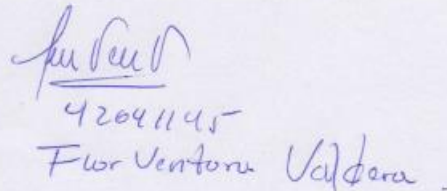 42041145
Flor Ventura Valdera